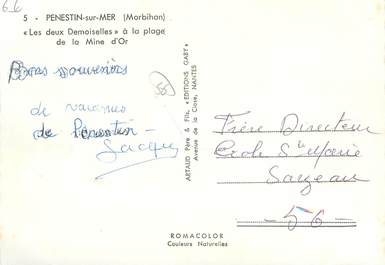 6.6
5 - PENESTIN-sur-MER (Morbihan)
« Les deux Demoiselles » à la plage
de la Mine d'Or
Bons souvenirs
de vacances
de Pénestin -
Jacques
ARTAUD Père & Fils, « EDITIONS GABY »
Avenue de la Close, NANTES
Frère Directeur
Ecole Ste Marie
Sarzeau
- 56 -
ROMACOLOR
Couleurs Naturelles